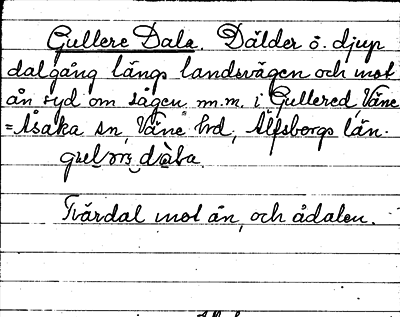 Gullere Dala. Dälder ö. djup
dalgång längs landsvägen och mot
ån syd om sågen m.m. i Gullered, Väne
=Åsaka sn, Väne hrd, Älfsborgs län.
Tvärdal mot ån, och ådalen.